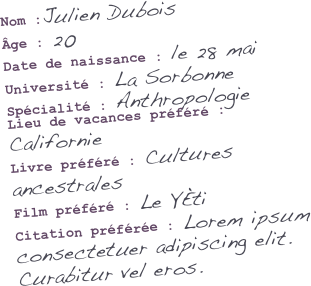 Nom : Julien Dubois
Âge : 20
Date de naissance : le 28 mai
Université : La Sorbonne
Spécialité : Anthropologie
Lieu de vacances préféré :
Californie
Livre préféré : Cultures
ancestrales
Film préféré : Le YÈti
Citation préférée : Lorem ipsum
consectetuer adipiscing elit.
Curabitur vel eros.